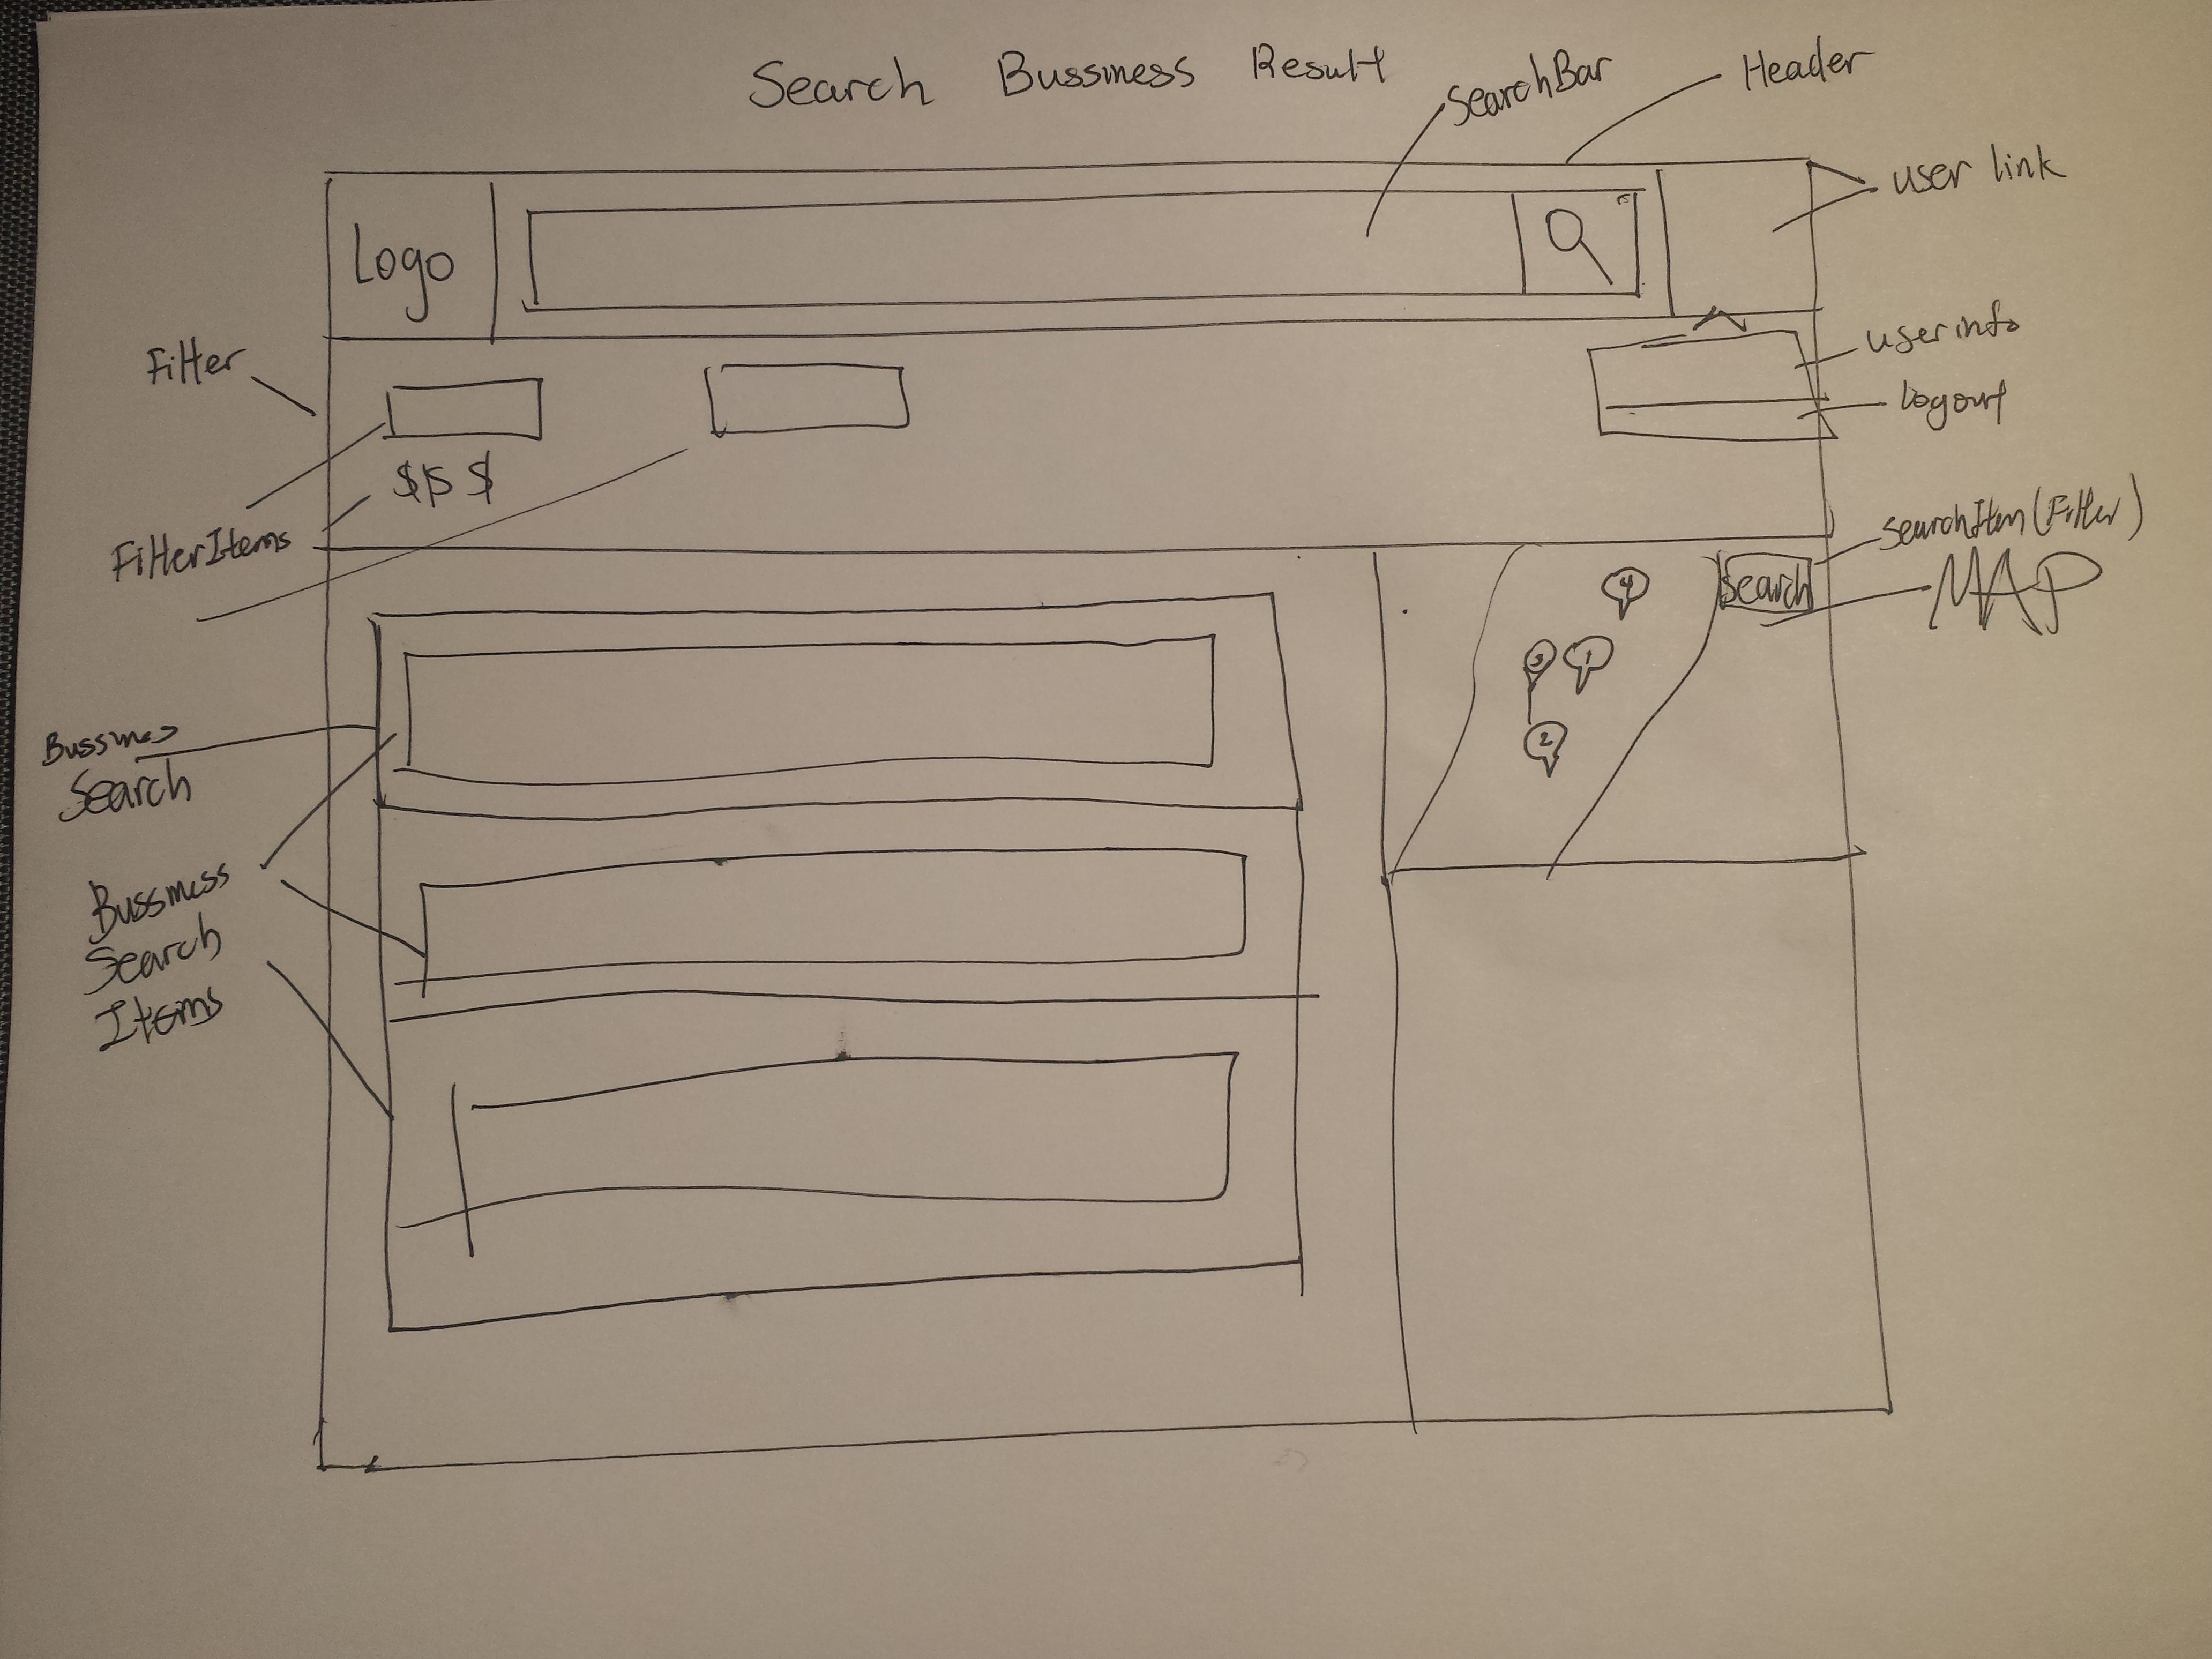 Search Bussiness Result
SearchBar
Header
user link
Logo
Filter
userinfo
logout
$$$
FilterItems
SearchItem (Filter)
Search
MAP
4
3
1
2
Bussiness
Search
Bussiness
Search
Items